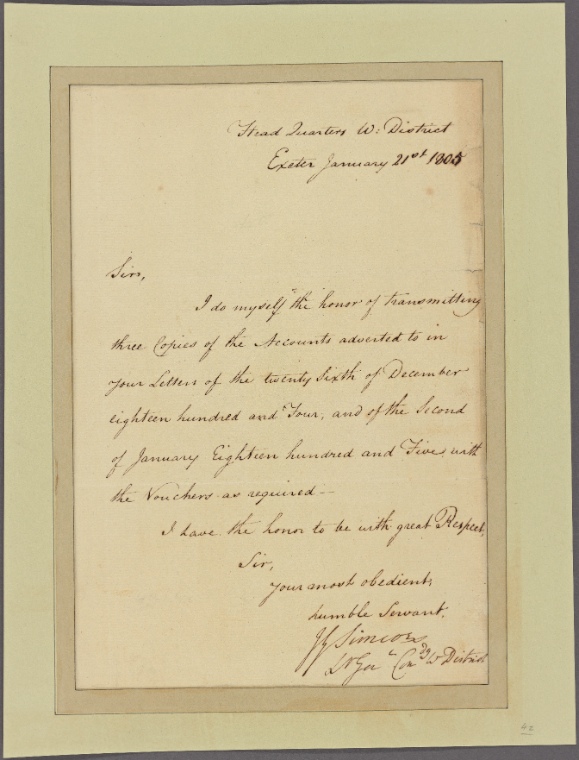 Head Quarters W: District
Exeter January 21st 1805
Sir,
I do myself the honor of transmitting
three Copies of the Accounts adverted to in
your Letters of the twenty Sixth of December
eighteen hundred and Four, and of the Second
of January Eighteen hundred and Five with
the Vouchers as required—
I have the honor to be with great Respect,
Sir,
your most obedient,
humble Servant.
JG Simcoe
Lt Genl Comdg W District
42